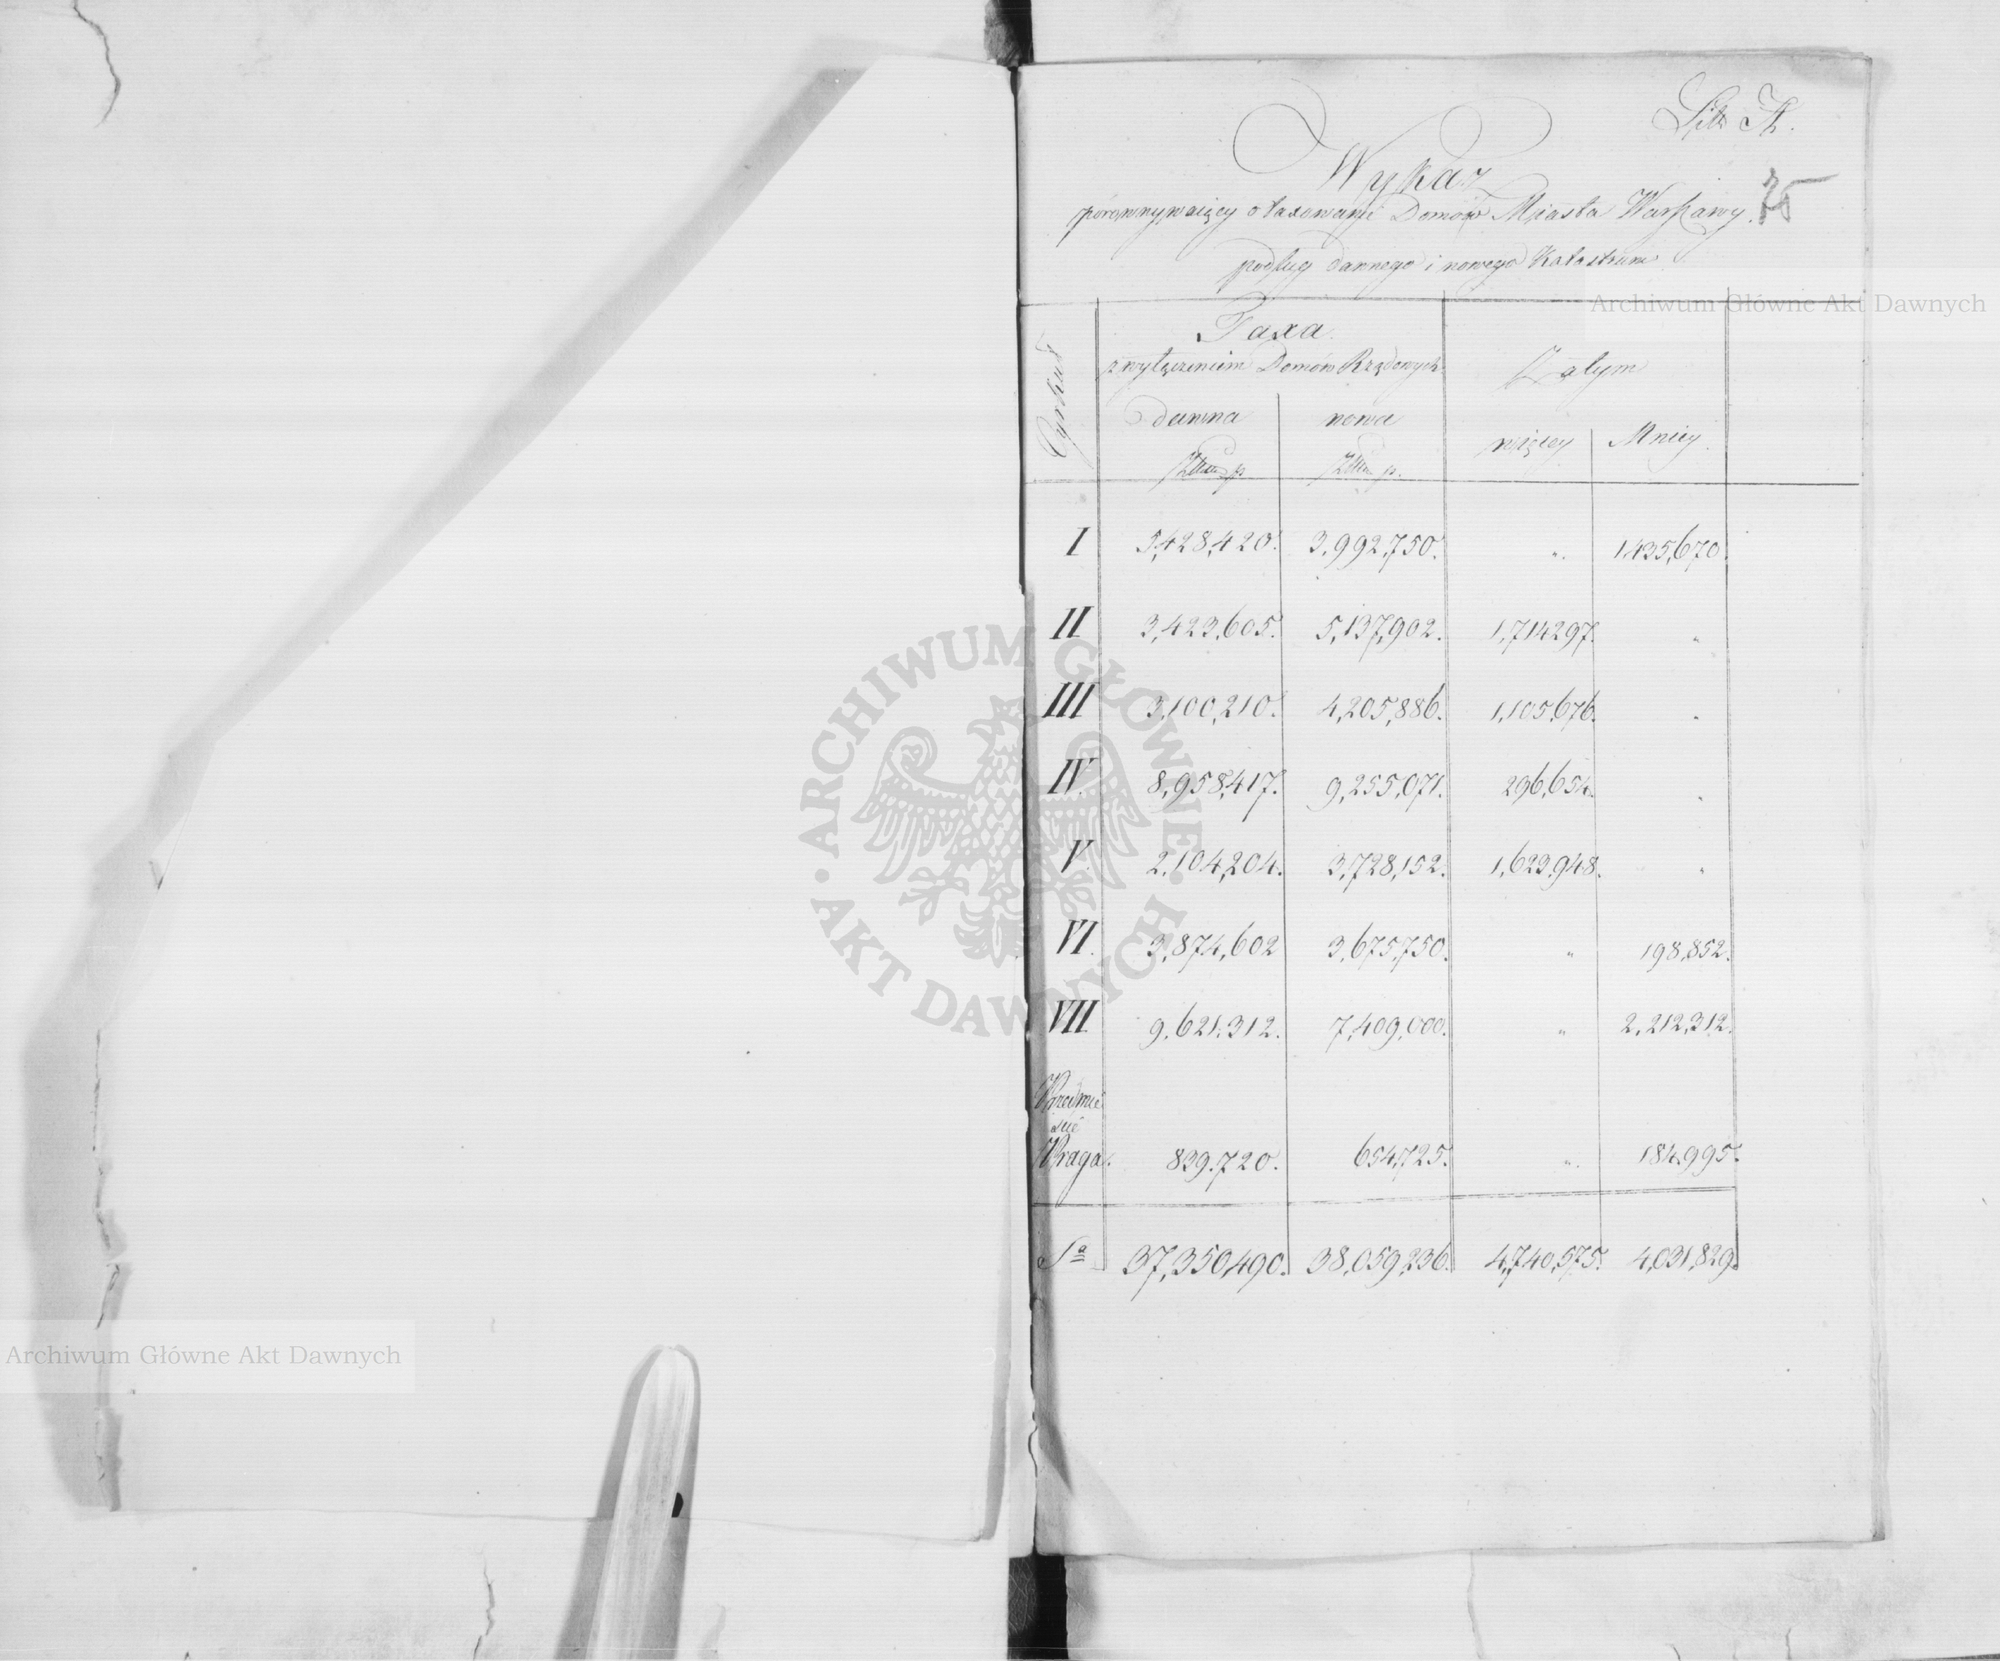 Litt A.
75
Wykaz
porównywaiący otaxowanie Domów Miasta Warszawy
podług dawnego i nowego Katastrum
Cyrkuł
Taxa
z wyłączeniem Domów Rządowych
Zatym
dawna
nowa
więcey
Mniey
I 5,428,420. 3,992,750. ". 1,435,670
II 3,423,605. 5,137,902. 1,714,297. "
III 3,100,210. 4,205,886. 1,105,676. "
IV 8,958,417. 9,255,071. 296,654. "
V 2,104,204. 3,728,152. 1,623,948. "
VI. 3,874,602 3,675,750. " 198,852.
VII 9,621,312. 7,409,000. " 2,212,312.
Przedmie
ście
Praga. 839,720. 654,725. ". 184,995.
Sa 37,350,490. 38,059,236. 4,740,575. 4,031,829.
Archiwum Główne Akt Dawnych
ARCHIWUM GŁÓWNE · AKT DAWNYCH ·
Archiwum Główne Akt Dawnych